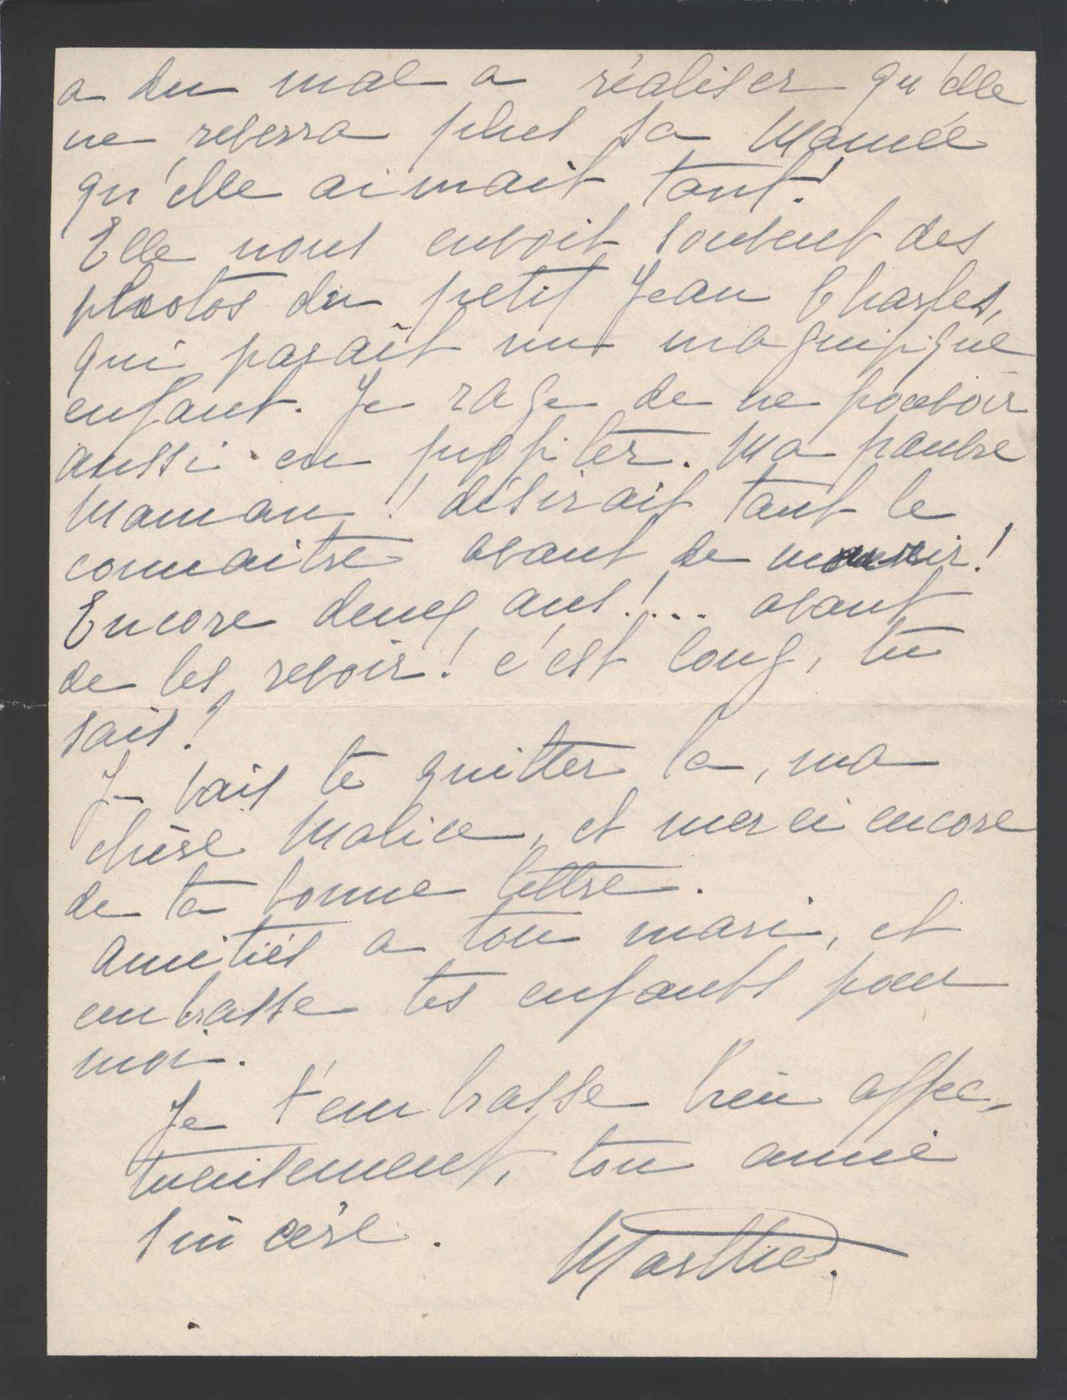 a du mal a réaliser qu'elle
ne reverra plus sa Mamée
qu'elle aimait tant!
Elle nous envoit souvent des
photos du petit Jean Charles,
qui paraît un magnifique
enfant. Je rage de ne pouvoir
aussi en profiter. Ma pauvre
Maman! désirait tant le
connaitre avant de mourir!
Encore deux ans!... avant
de les revoir! c'est long, tu
sais!
Je vais te quitter la, ma
chère Malice, et merci encore
de ta bonne lettre.
Amitiés a ton mari, et
embrasse tes enfants pour
moi.
Je t'embrasse bien affec-
tueusement, ton amie
sincère.
Marthe.